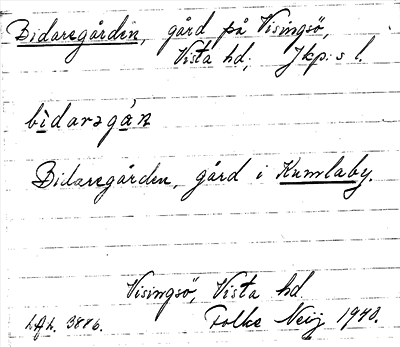 Bidaregården, gård på Visingsö,
Vista hd, Jkp:s l.
bìdarəgàn
Bidaregården, gård i Kumlaby.
Visingsö, Vista hd
3886. Folke Neij 1940.